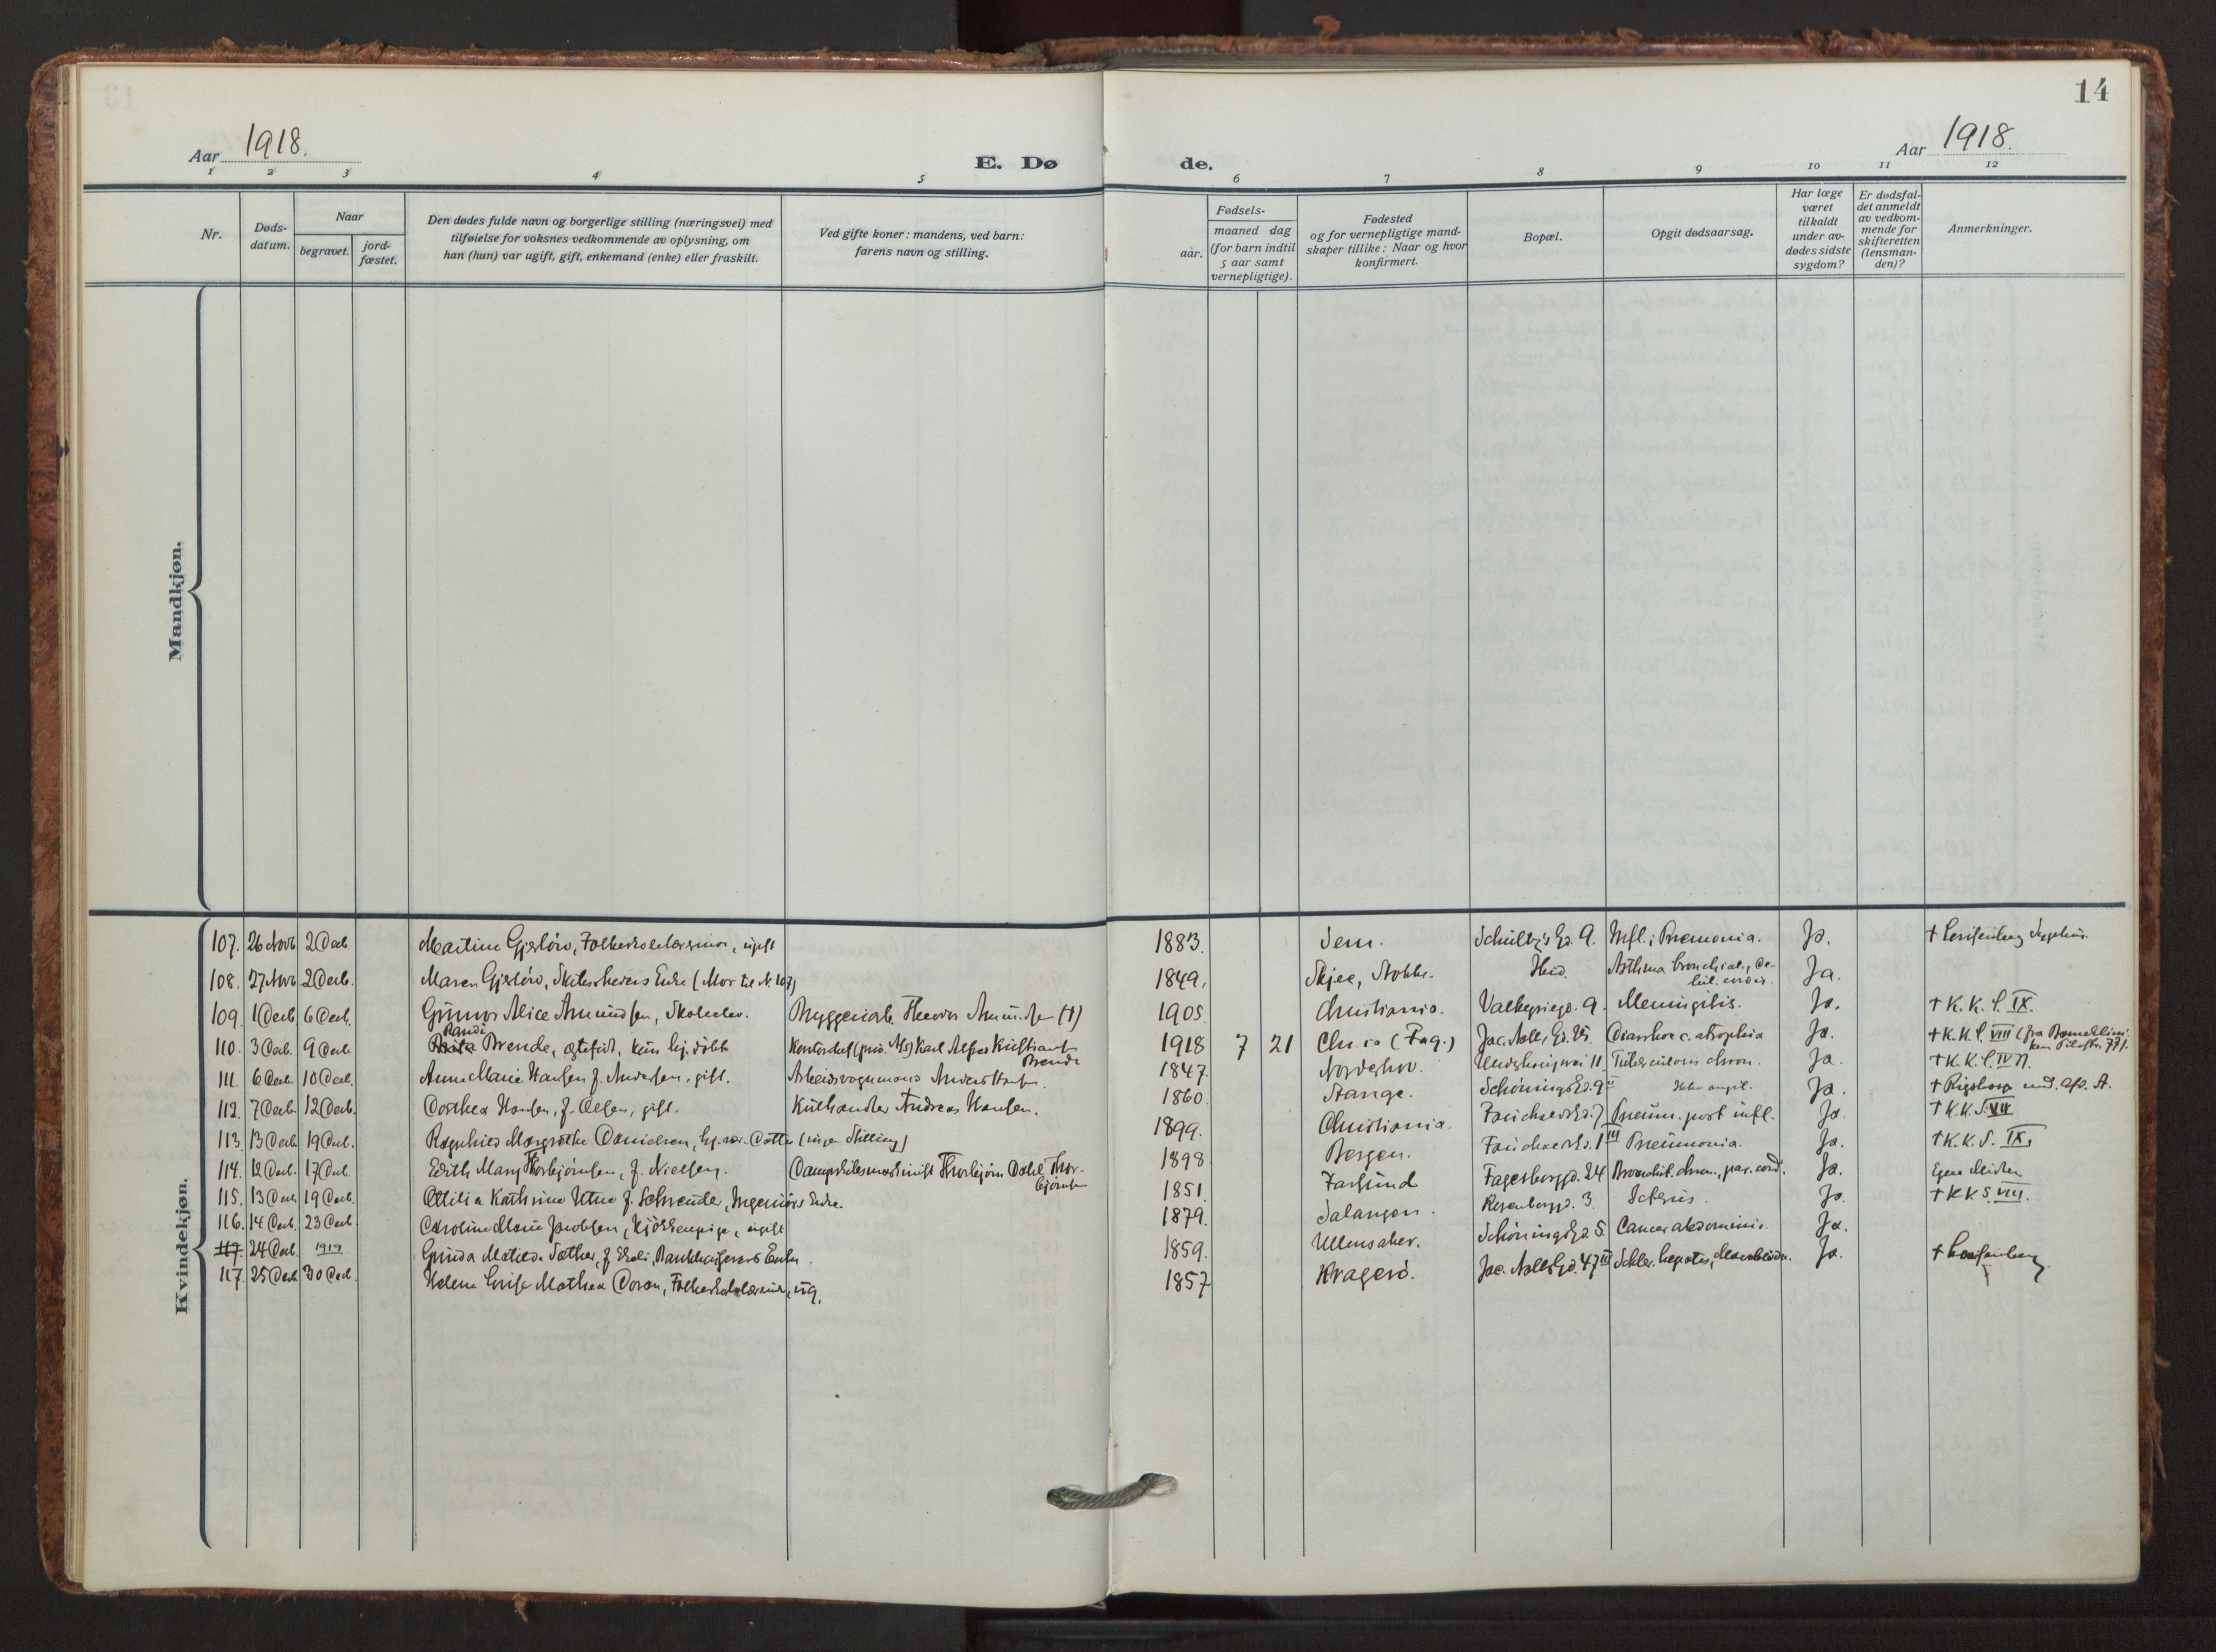 14
Aar 1918.
E. Dø de.
Aar 1918.
1 2 3 4 5 6 7 8 9 10 11 12
Nr.
Døds-
datum.
Naar
begravet.
jord-
fæstet.
Den dødes fulde navn og borgerlige stilling (næringsvei) med
tilføielse for voksnes vedkommende av oplysning, om
han (hun) var ugift, gift, enkemand (enke) eller fraskilt.
Ved gifte koner: mandens, ved barn:
farens navn og stilling.
Fødsels-
aar.
maaned dag
(for barn indtil
5 aar samt
vernepligtige).
Fødested
og for vernepligtige mand-
skaper tillike: Naar og hvor
konfirmert.
Bopæl.
Opgit dødsaarsag.
Har læge
været
tilkaldt
under av-
dødes sidste
sygdom?
Er dødsfal-
det anmeldt
av vedkom-
mende for
skifteretten
(lensman-
den)?
Anmerkninger.
Mandkjøn.
Kvindekjøn.
107. 26 Novb 2 Decb Martine Gjerløw, Folkeskolelærerinde, ugift 1883. Sem. Schultz's Gd. 9. Infl.; Pnemonia. Ja.
108. 27 Novb 2 Decb. Maren Gjerløw, Enke (Mor til N. 107) 1849, Skjee, Stokke. Ibid. Asthma bronchial., De-
bil. cordis. Ja.
109. 1 Decb 6 Decb. Gunvor Alice Amundsen, Skoleelev. Amundsen (†) 1905 Christiania. Valkyriegd. 9. Meningitis. Ja. † K. K. S. IX.
Randi
110. 3 Decb. 9 Decb. Brende, ægtefødt, kun hj. døbt Karl Alfred Kristiansen
Brende 1918 7 21 Chr.ia (Fag.) Jac. Aalls Gd. 25. Diarrhoe c. atrophia Ja. † K. K. S. VIII
111. 6 Decb. 10 Decb. Anne Marie Hansen f. Andersen, gift. Arbeidsvognmand Anders Hansen. 1847. Norderhov. 11 Tuberculosis chron. Ja. † K. K. S. IV
112. 7 Decb. 12 Decb. Dorthea Hansen, f. Olsen, gift. Kulhandler Andreas Hansen. 1860. Stange. Schønings Gd. 9 Ja. † Rigshosp. med. afd. A.
113. 13 Decb 19 Decb. Ragnhild Margrethe Danielsen, hj.vær. Datter (ingen Stilling) 1899. Christiania. Fauchalds Gd. 7 Pneum. post infl. Ja. † K. K. S. VII
114. 12 Decb. 17 Decb. Edith Mary Thorbjørnsen, f. Nielsen. Dampskibsmaskinist Thorbjørn Dahl Thor-
bjørnsen 1898 Bergen. Fauchalds Gd. 1 III Pneumonia. Ja. † K. K. S. IX
115. 13 Decb 19 Decb. Ottilia Kathrine Utne f. Schrøder, Ingeniørs Enke. 1851. Farsund Fagerborggd. 24 Bronchit. chron., par. cord. Ja. Egen
116. 14 Decb. 23 Decb Caroline Marie Jacobsen, Kjøkkenpige, ugift 1879. Salangen. Rosenborggd. 3. Icterus. Ja. † K K S. VIII.
117. 24 Decb. 1919 Gunda Matilde Sæther, f. Enke. 1859. Ullensaker. Schønings Gd. 5. Cancer abdominis. Ja.
117. 25 Decb 30 Decb Helene Lovise Mathea Doran, Folkeskolelærerinde, ug. 1857 Kragerø. Jac. Aalls Gd. 47 III Ja.